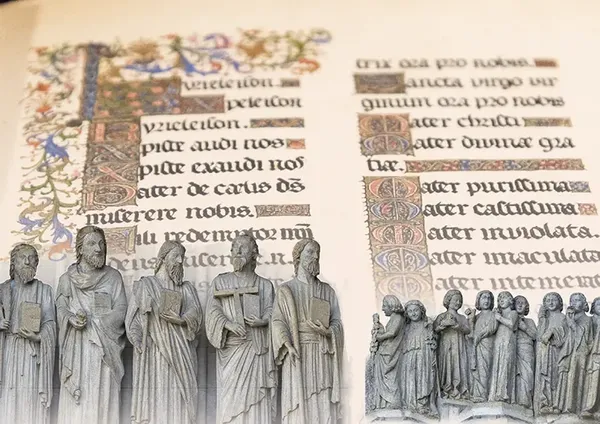 Kyrieleison.
Xpeleison
Kyrieleison.
Xpiste audi nos
Xpiste exaudi nos
Pater de caelis ds̄
miserere nobis.
Fili redemptor mūn
deus miserere n.
trix ora pro nobis.
Sancta virgo vir
ginum ora pro nobis
Mater christi
Mater divinae gra
tiae.
Mater purissima
Mater castissima
Mater inviolata
Mater inmaculata
Mater intemera